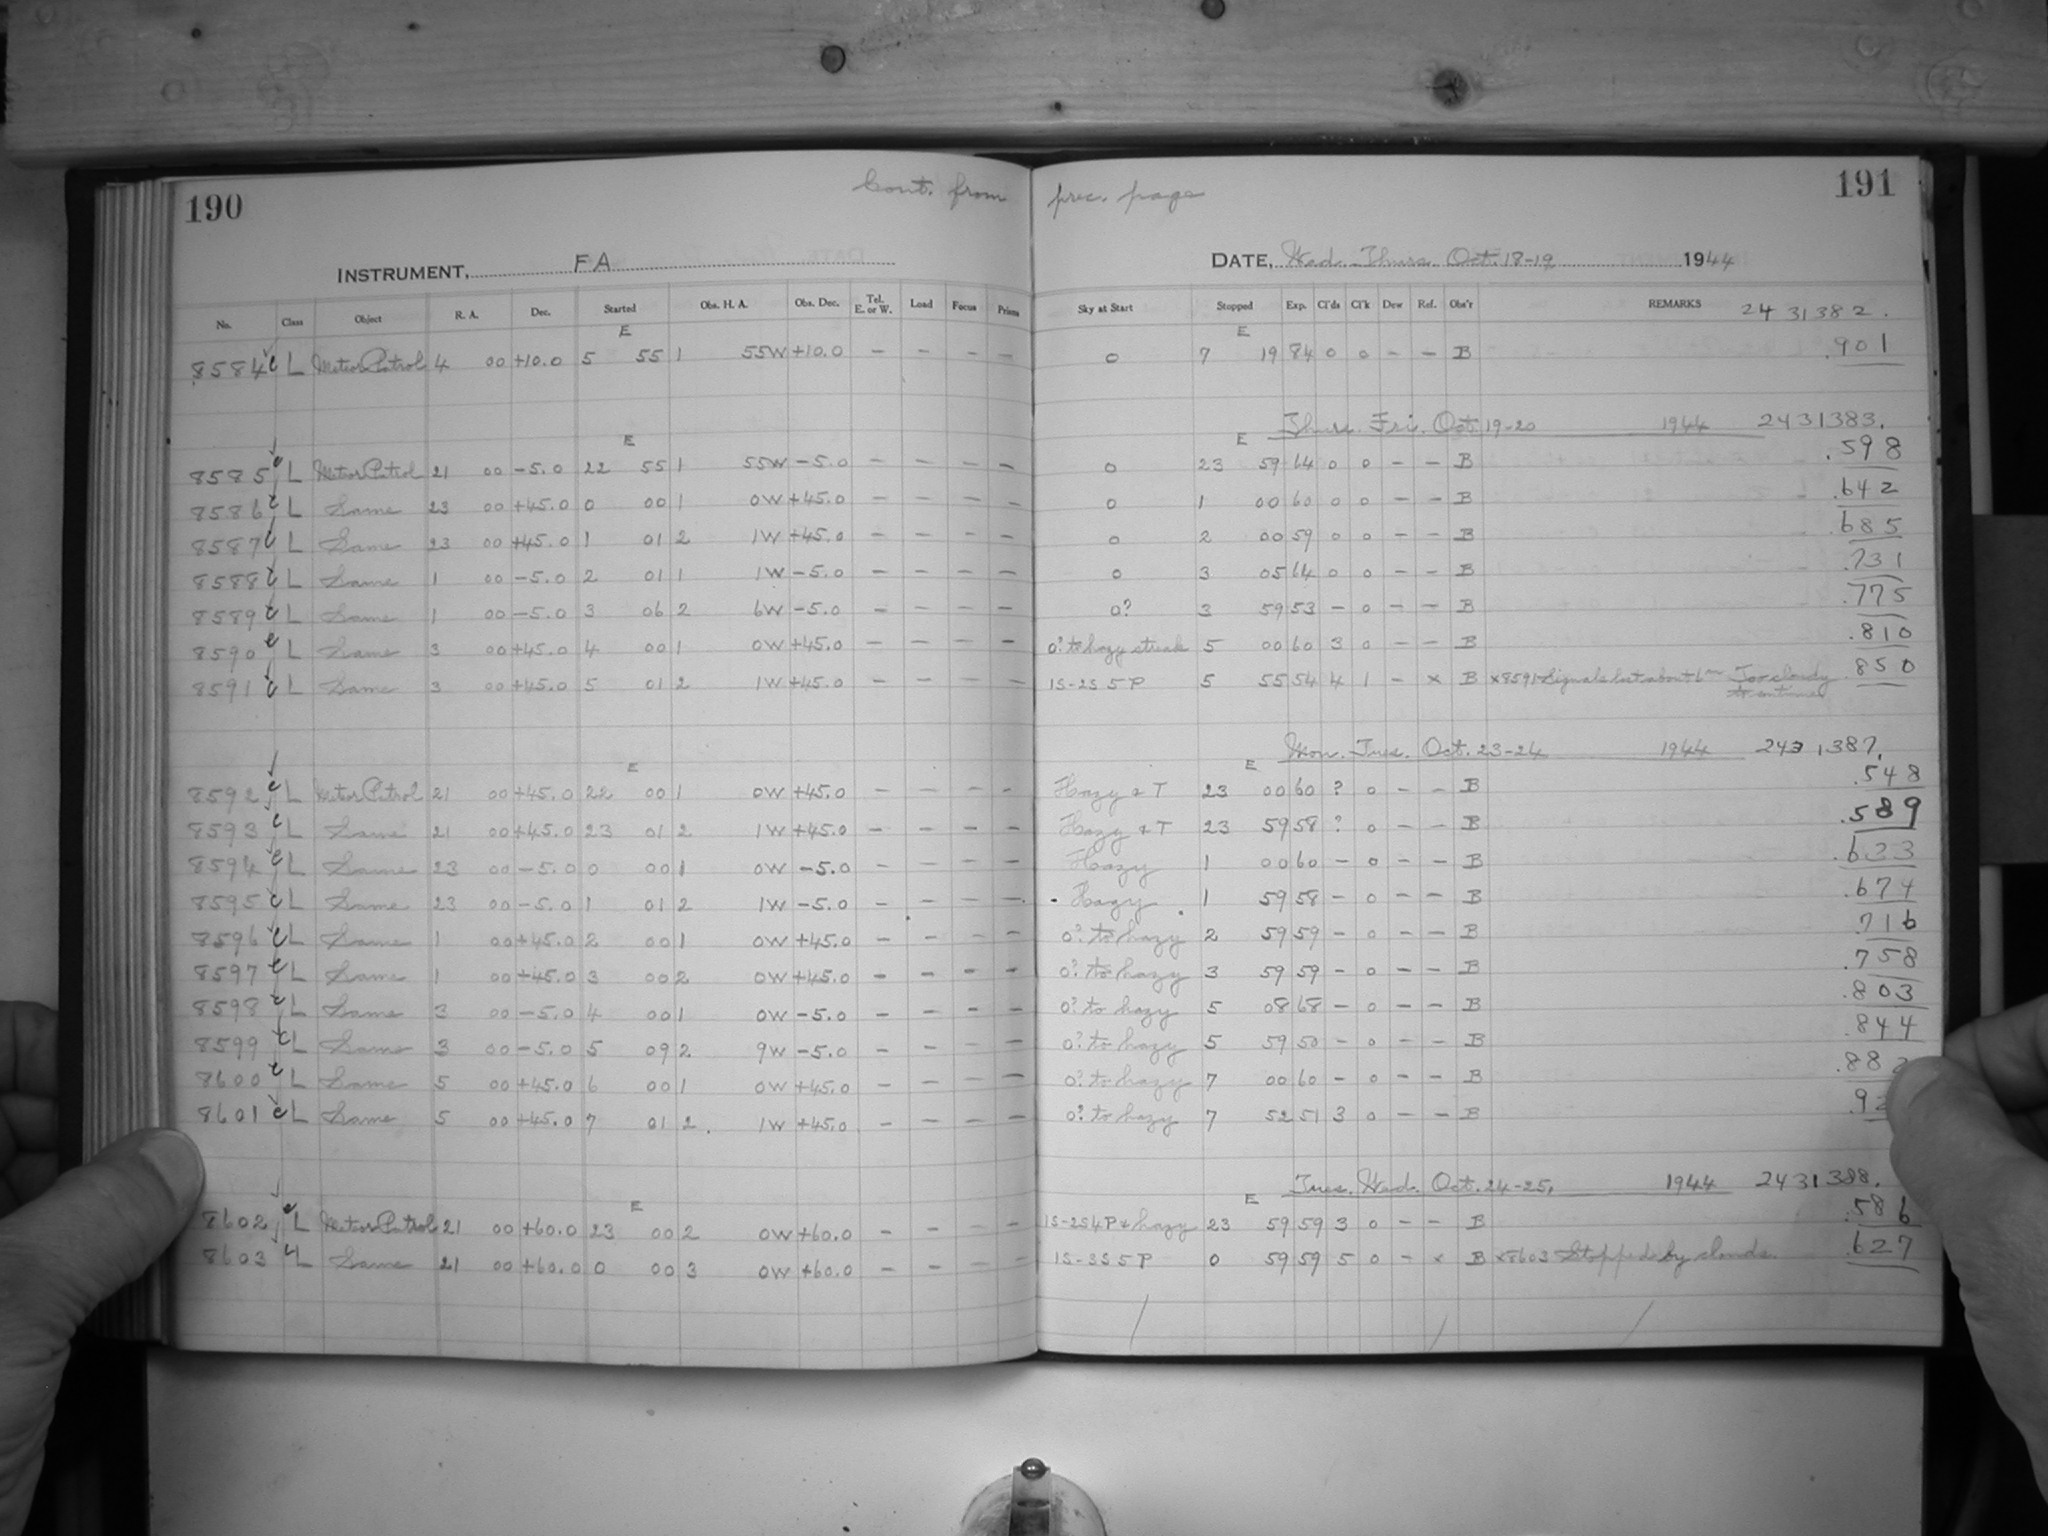 190 Cont. from prec. page 191
INSTRUMENT, FA DATE, Wed. Thurs. Oct. 18-19 1944
No. Class Object R. A. Dec. Started Obs. H. A. Obs. Dec. Tel. E. or W. Load Focus Prisms Sky at Start Stopped Exp. Cl'ds Cl'k Dew Ref. Obs'r REMARKS 2431382.
E E
8584 L Meteor Patrol 4 00 +10.0 5 55 1 55W +10.0 - - - - 0 7 19 84 0 0 - - B .901
Thurs. Fri. Oct. 19-20 1944 2431383.
E E
8585 L Meteor Patrol 21 00 -5.0 22 55 1 55W -5.0 - - - - 0 23 59 64 0 0 - - B .598
8586 L Same 23 00 +45.0 0 00 1 0W +45.0 - - - - 0 1 00 60 0 0 - - B .642
8587 L Same 23 00 +45.0 1 01 2 1W +45.0 - - - - 0 2 00 59 0 0 - - B .685
8588 L Same 1 00 -5.0 2 01 1 1W -5.0 - - - - 0 3 05 64 0 0 - - B .731
8589 L Same 1 00 -5.0 3 06 2 6W -5.0 - - - - 0? 3 59 53 - 0 - - B .775
8590 L Same 3 00 +45.0 4 00 1 0W +45.0 - - - - 0? to hazy streak 5 00 60 3 0 - - B .810
8591 L Same 3 00 +45.0 5 01 2 1W +45.0 - - - - 1S-2S 5P 5 55 54 4 1 - x B x8591 Signals lost about 6m Too cloudy to continue .850
Mon. Tues. Oct. 23-24 1944 2431387.
E E
8592 L Meteor Patrol 21 00 +45.0 22 00 1 0W +45.0 - - - - Hazy & T 23 00 60 ? 0 - - B .548
8593 L Same 21 00 +45.0 23 01 2 1W +45.0 - - - - Hazy & T 23 59 58 ? 0 - - B .589
8594 L Same 23 00 -5.0 0 00 1 0W -5.0 - - - - Hazy 1 00 60 - 0 - - B .633
8595 L Same 23 00 -5.0 1 01 2 1W -5.0 - - - - Hazy 1 59 58 - 0 - - B .674
8596 L Same 1 00 +45.0 2 00 1 0W +45.0 - - - - 0? to hazy 2 59 59 - 0 - - B .716
8597 L Same 1 00 +45.0 3 00 2 0W +45.0 - - - - 0? to hazy 3 59 59 - 0 - - B .758
8598 L Same 3 00 -5.0 4 00 1 0W -5.0 - - - - 0? to hazy 5 08 68 - 0 - - B .803
8599 L Same 3 00 -5.0 5 09 2 9W -5.0 - - - - 0? to hazy 5 59 50 - 0 - - B .844
8600 L Same 5 00 +45.0 6 00 1 0W +45.0 - - - - 0? to hazy 7 00 60 - 0 - - B .88
8601 L Same 5 00 +45.0 7 01 2 1W +45.0 - - - - 0? to hazy 7 52 51 3 0 - - B .92
Tues. Wed. Oct. 24-25, 1944 2431388.
E E
8602 L Meteor Patrol 21 00 +60.0 23 00 2 0W +60.0 - - - - 1S-2S 4P & hazy 23 59 59 3 0 - - B .586
8603 L Same 21 00 +60.0 0 00 3 0W +60.0 - - - - 1S-3S 5P 0 59 59 5 0 - x B x8603 Stopped by clouds. .627